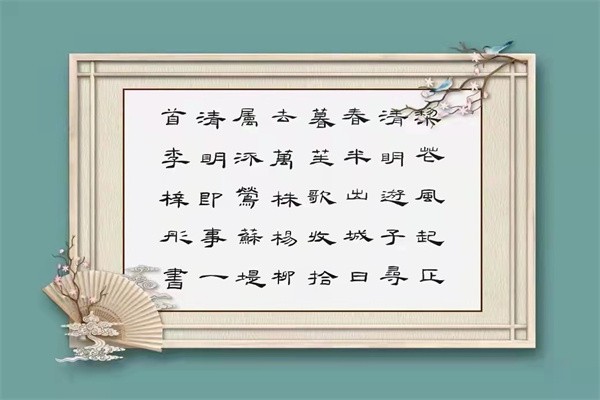 黎花風起正
清明遊子尋
春半出城日
暮笙歌收拾
去萬株楊柳
属流鶯蘇堤
清明即事一
首李梓彤書